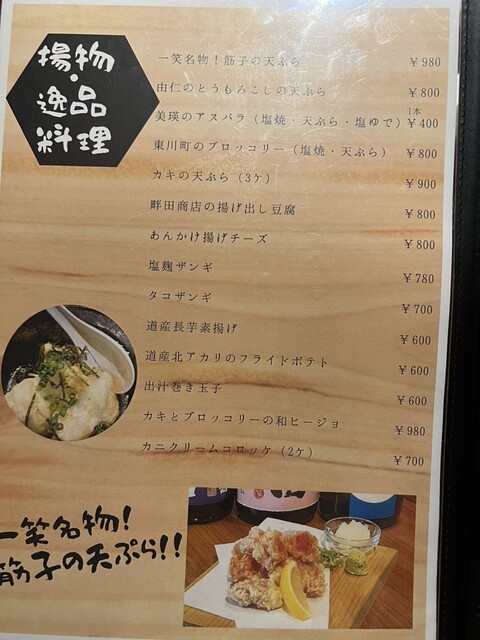 揚物
・
逸品
料理
一笑名物！筋子の天ぷら ￥980
由仁のとうもろこしの天ぷら ￥800
美瑛のアスパラ（塩焼・天ぷら・塩ゆで）1本￥400
東川町のブロッコリー（塩焼・天ぷら） ￥800
カキの天ぷら（3ケ） ￥900
畔田商店の揚げ出し豆腐 ￥800
あんかけ揚げチーズ ￥800
塩麹ザンギ ￥780
タコザンギ ￥700
道産長芋素揚げ ￥600
道産北アカリのフライドポテト ￥600
出汁巻き玉子 ￥600
カキとブロッコリーの和ヒージョ ￥980
カニクリームコロッケ（2ケ） ￥700
一笑名物！
筋子の天ぷら!!